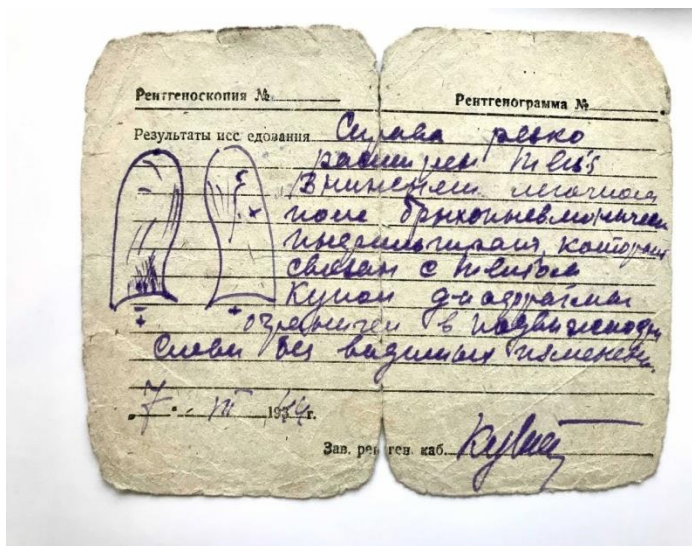 Рентгеноскопия №
Рентгенограмма №
Результаты исс едования Справа резко
расширен hilus
В нижнем легочном
поле бронхопневмоническ
инфильтрация, которая
связан с hilusом
Купол диафрагмы
ограничен в подвижности
Слева без видимых изменен.
„7" III 1944г.
Зав. рентген. каб.